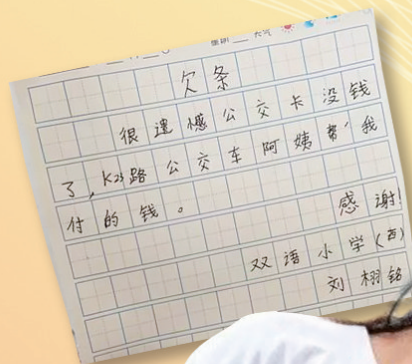 星期 天气
欠条
很遗憾公交卡没钱
了，K23路公交车阿姨帮我
付的钱。
感谢！
双语小学（西）
刘栩铭